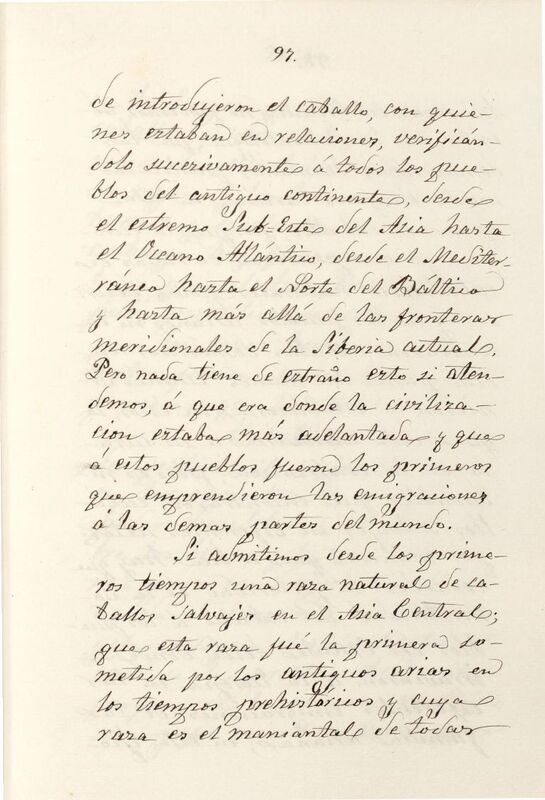 97.
de introdujeron el caballo, con quie-
nes estaban en relaciones, verificán-
dolo sucesivamente á todos los pue-
blos del antiguo continente, desde
el estremo Sub-Este del Asia hasta
el Oceano Atlántico, desde el Mediter-
ráneo hasta el Norte del Báltico
y hasta más allá de las fronteras
meridionales de la Siberia actual.
Pero nada tiene de estraño esto si aten-
demos, á que era donde la civiliza-
cion estaba más adelantada y que
á estos pueblos fueron los primeros
que emprendieron las emigraciones
á las demas partes del mundo.
Si admitimos desde los prime-
ros tiempos una raza natural de ca-
ballos salvajes en el Asia Central;
que esta raza fué la primera so-
metida por los antiguos arias en
los tiempos prehistóricos y cuya
raza es el maniantal de todas